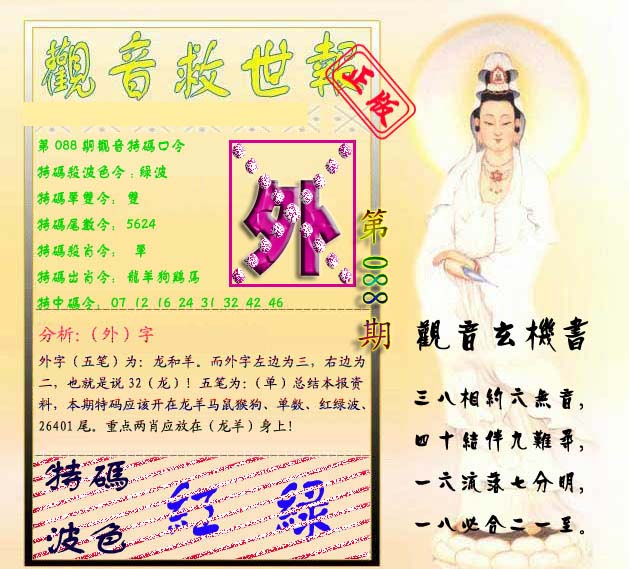 觀音救世報
正版
第088期觀音特碼口令
特碼殺波色令:綠波
特碼單雙令: 雙
特碼尾數令: 5624
特碼殺肖令: 單
特碼出肖令: 龍羊狗鷄馬
特中碼令: 07 12 16 24 31 32 42 46
外
第088期
分析:(外)字
外字(五笔)为: 龙和羊。而外字左边为三, 右边为
二, 也就是说32(龙)! 五笔为:(单)总结本报资
料, 本期特码应该开在龙羊马鼠猴狗、单数、红绿波、
26401尾。重点两肖应放在(龙羊)身上!
特碼
波色
紅 綠
觀音玄機書
三八相約六無音,
四十結伴九難尋,
一六流落七分明,
一八必合二一至。